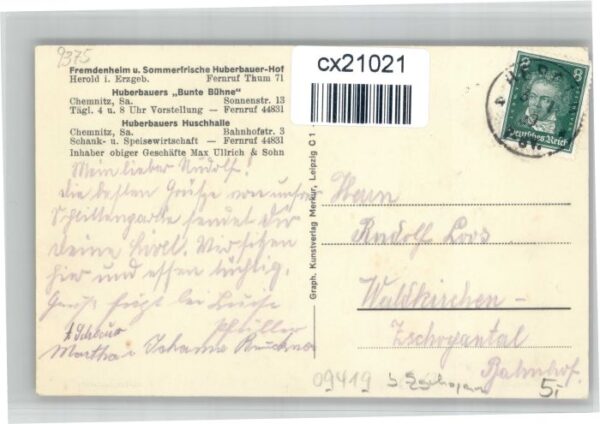 9375
Fremdenheim u. Sommerfrische Huberbauer-Hof
Herold i. Erzgeb. Fernruf Thum 71
Huberbauers „Bunte Bühne"
Chemnitz, Sa. Sonnenstr. 13
Tägl. 4 u. 8 Uhr Vorstellung — Fernruf 44831
Huberbauers Huschhalle
Chemnitz, Sa. Bahnhofstr. 3
Schank- u. Speisewirtschaft — Fernruf 44831
Inhaber obiger Geschäfte Max Ullrich & Sohn
Mein lieber Rudolf!
Die besten Grüße von unsrer
Schlittenpartie sendet dir
deine Wir sitzen
hier und essen tüchtig.
Gruß fügt bei
Martha u. Johanna
Graph. Kunstverlag Merkur, Leipzig C 1
cx21021
8 8
Deutsches Reich
Herrn
Rudolf
Waldkirchen -
Zschopautal
Bahnhof.
09419
5,-